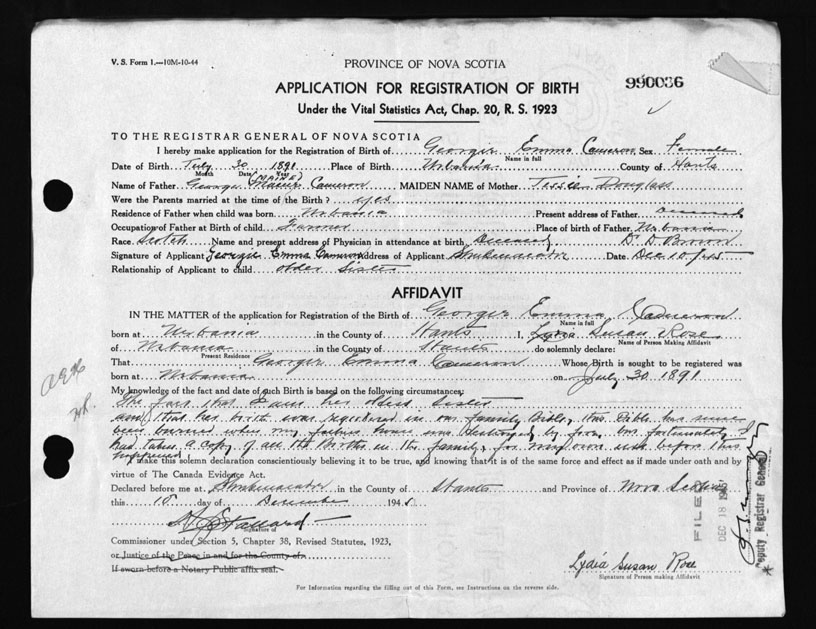 V. S. Form 1.—10M-10-44
PROVINCE OF NOVA SCOTIA
APPLICATION FOR REGISTRATION OF BIRTH
990036
Under the Vital Statistics Act, Chap. 20, R. S. 1923
TO THE REGISTRAR GENERAL OF NOVA SCOTIA
I hereby make application for the Registration of Birth of Georgie Emma Cameron Sex Female
Name in full
Date of Birth July 30 1891 Place of Birth Urbania County of Hants
Month Date Year
Name of Father George Cameron MAIDEN NAME of Mother Jessie Douglass
Were the Parents married at the time of the Birth? yes
Residence of Father when child was born Urbania Present address of Father
Occupation of Father at Birth of child Farmer Place of birth of Father Urbania
Race Scotch Name and present address of Physician in attendance at birth Deceased Dr. D. Brown
Signature of Applicant Georgie Emma Cameron Address of Applicant Shubenacadie Date Dec 10/45
Relationship of Applicant to child older sister
AFFIDAVIT
IN THE MATTER of the application for Registration of the Birth of Georgie Emma Cameron
Name in full
born at Urbania in the County of Hants I, Lydia Susan Rose
Name of Person Making Affidavit
of Urbania in the County of Hants do solemnly declare:
Present Residence
That Georgie Emma Cameron Whose Birth is sought to be registered was
born at Urbania on July 30 1891
My knowledge of the fact and date of such Birth is based on the following circumstances
The fact that I am her oldest sister
and that her birth was registered in our family Bible, this Bible has since
been burned when my fathers house was destroyed by fire, but fortunately I
had taken a copy of all the Births in the family, for my own use before this
happened
make this solemn declaration conscientiously believing it to be true, and knowing that it is of the same force and effect as if made under oath and by
virtue of The Canada Evidence Act.
Declared before me at Shubenacadie in the County of Hants and Province of Nova Scotia
this 10 day of December 1945
Signature of
Commissioner under Section 5, Chapter 38, Revised Statutes, 1923,
or Justice of the Peace in and for the County of
If sworn before a Notary Public affix seal.
Lydia Susan Rose
Signature of Person making Affidavit
FILED
DEC 18 1945
Deputy Registrar General
For Information regarding the filling out of this Form, see Instructions on the reverse side.